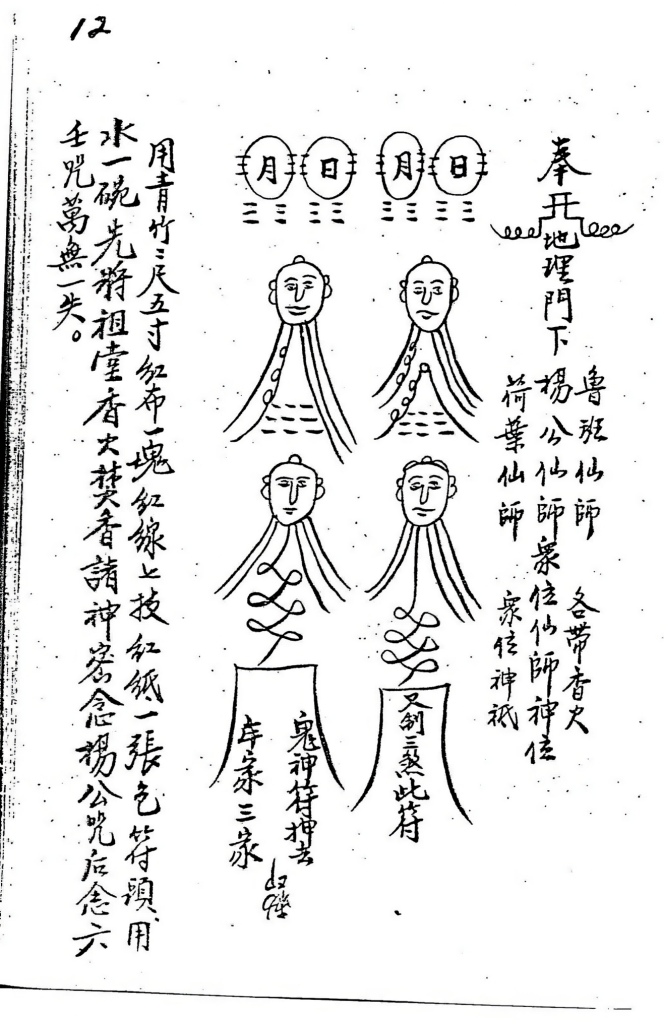 12
奉
开
地理門下
魯班仙師 各帶香火
楊公仙師衆位仙師神位
荷葉仙師 衆位神祇
日 月 日 月
又制三煞此符
鬼神符押去
年家三家
用青竹二尺五寸紅布一塊紅線七技紅紙一張包符頭用
水一碗先將祖堂香火焚香請神密念楊公咒后念六
壬咒萬無一失。